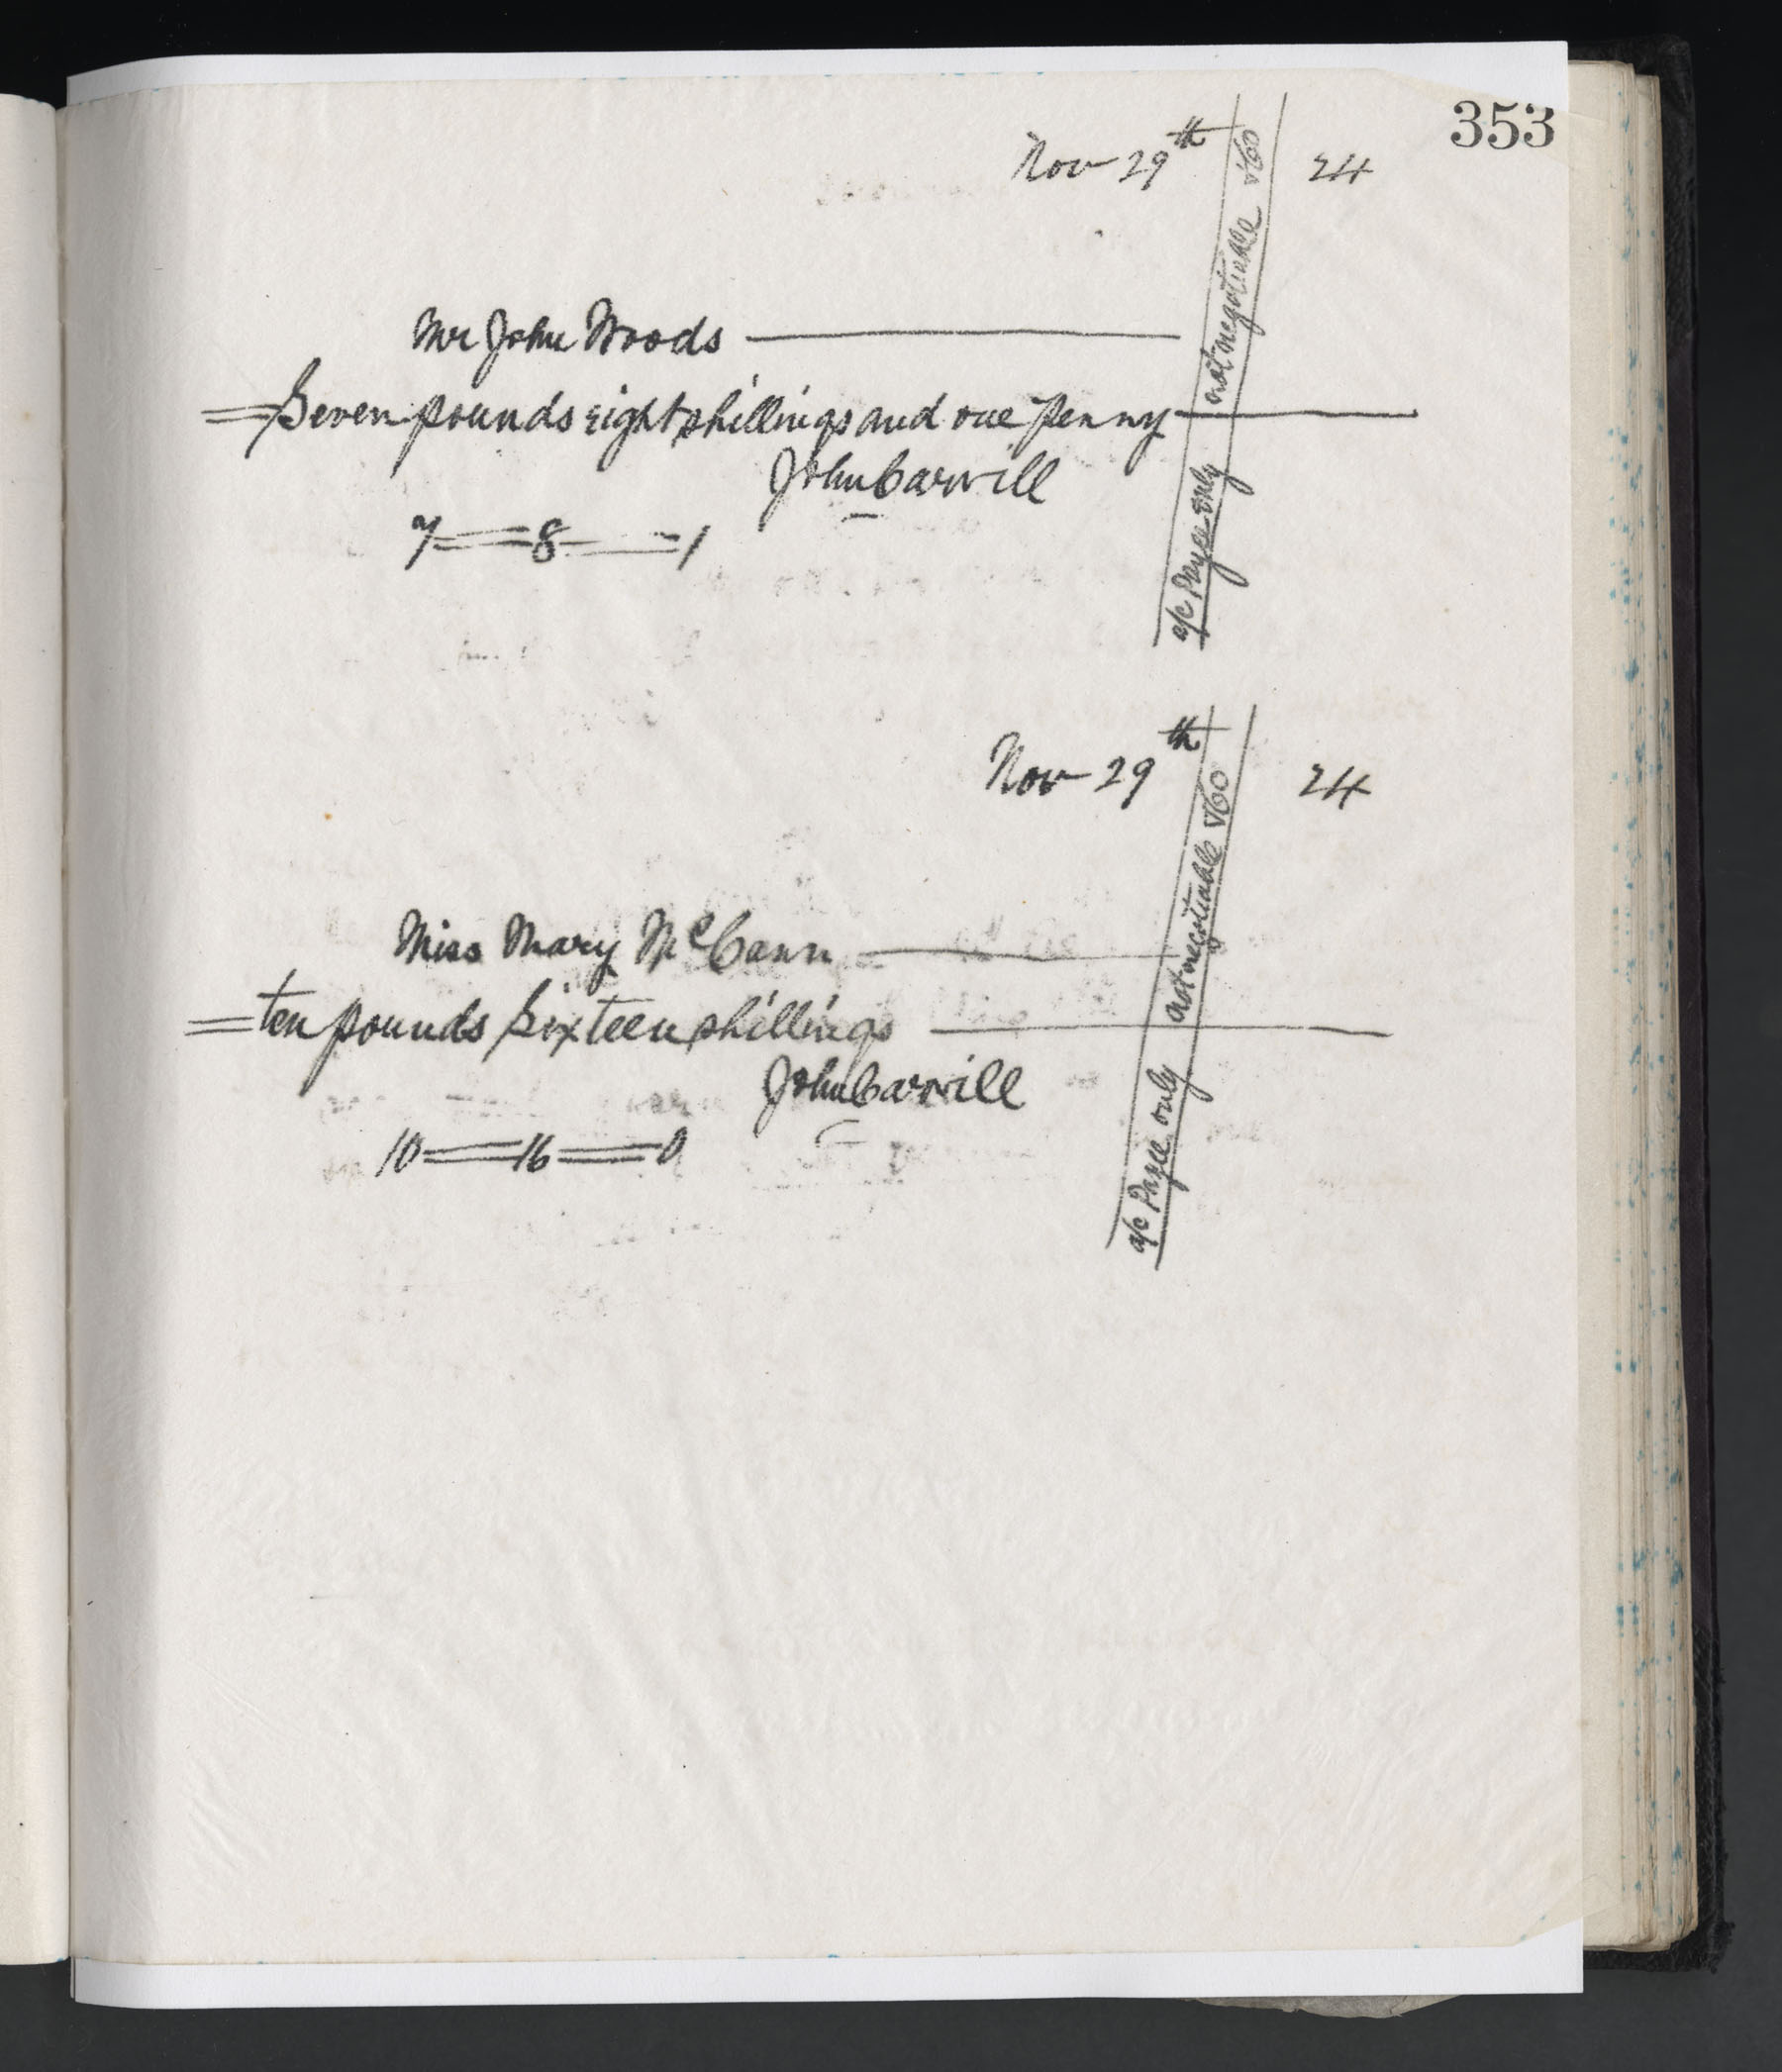 353
Nov 29th 24
Mr John Woods
Seven pounds eight shillings and one penny
John Carvill
7 = 8 = 1
a/c Payee only not negotiable &Co
Nov 29th 24
Miss Mary McCann
ten pounds Sixteen shillings
John Carvill
10 = 16 = 0
a/c Payee only not negotiable &Co